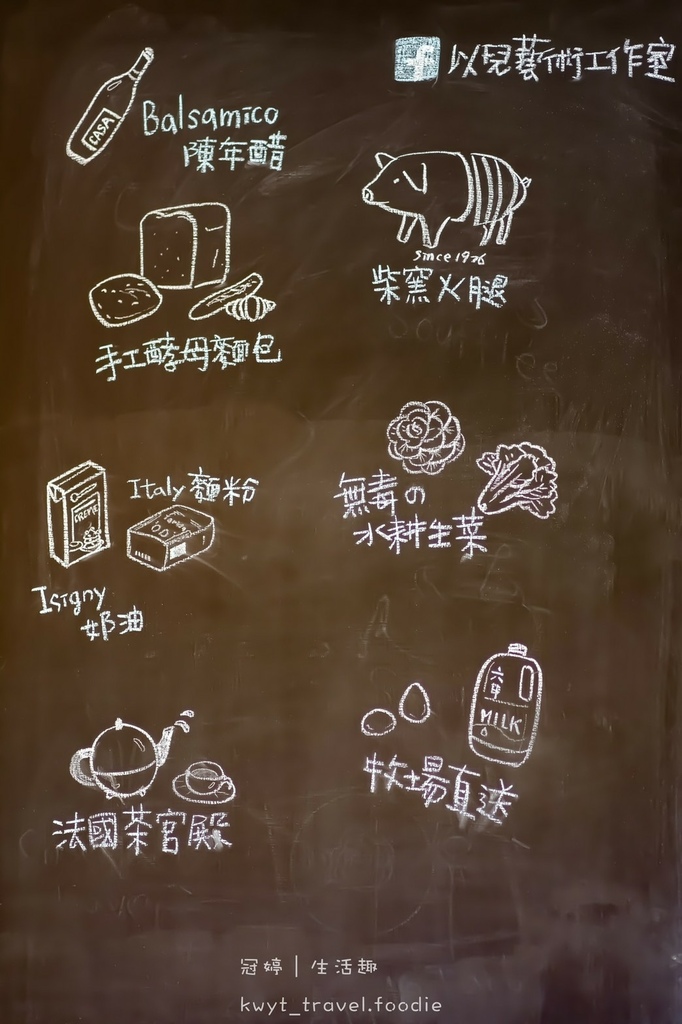 f 以兒藝術工作室
CASA
Balsamico
陳年醋
since 1926
柴窯火腿
手工酵母麵包
Italy 麵粉
CREME
無毒の
水耕生菜
Isigny
奶油
MILK
牧場直送
法國茶宮殿
冠婷 | 生活趣
kwyt_travel.foodie